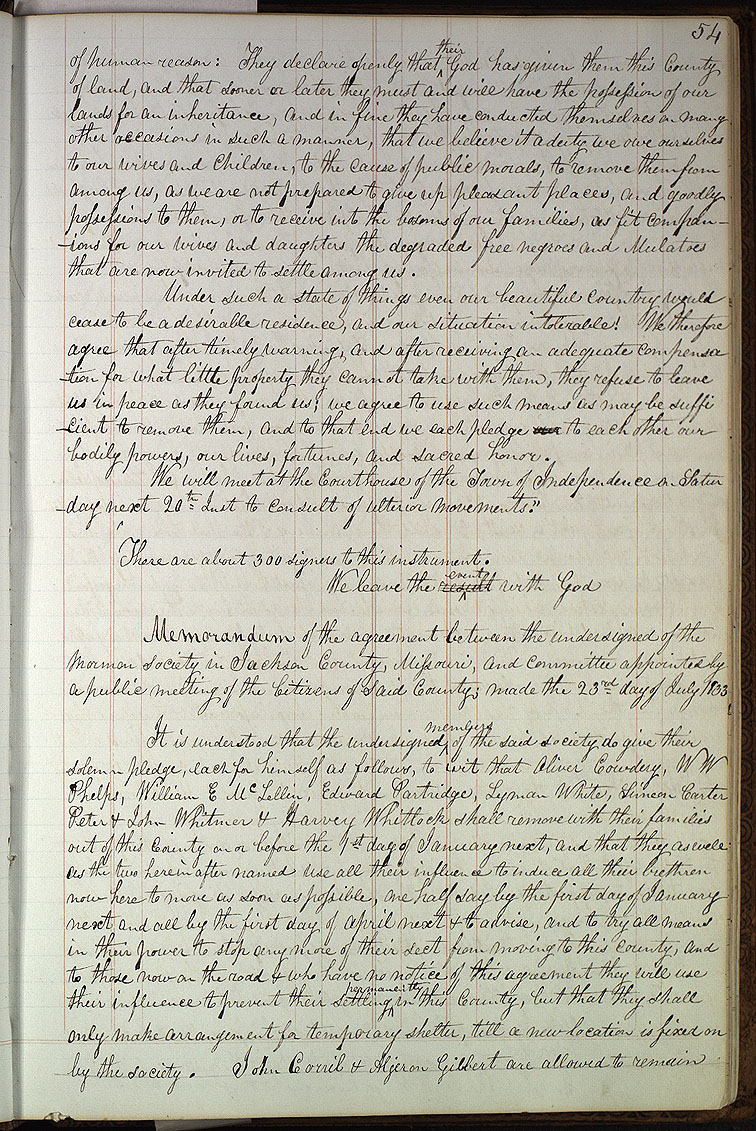 54
of human reason: They declare openly that their God has given them this County
of land, and that sooner or later they must and will have the possession of our
lands for an inheritance, and in fine they have conducted themselves on many
other occasions in such a manner, that we believe it a duty we owe ourselves
to our wives and children, to the cause of public morals, to remove them from
among us, as we are not prepared to give up pleasant places, and goodly
possessions to them, or to receive into the bosoms of our families, as fit compan-
-ions for our wives and daughters the degraded free negroes and Mulatoes
that are now invited to settle among us.
Under such a state of things even our beautiful country would
cease to be a desirable residence, and our situation intolerable! We therefore
agree that after timely warning, and after receiving an adequate compensa
-tion for what little property they cannot take with them, they refuse to leave
us in peace as they found us; we agree to use such means as may be suffi
-cient to remove them, and to that end we each pledge to each other our
bodily powers, our lives, fortunes, and sacred honor.
We will meet at the Courthouse of the Town of Independence on Satur
-day next 20th Inst to consult of ulterior movements."
There are about 300 signers to this instrument.
We leave the result event with God
Memorandum of the agreement between the undersigned of the
Mormon society in Jackson County, Missouri, and committee appointed by
a public meeting of the Citizens of said County; made the 23rd day of July 1833
It is understood that the undersigned, members of the said society, do give their
solemn pledge, each for himself as follows, to wit that Oliver Cowdery, W W
Phelps, William E McLellin, Edward Partridge, Lyman White, Simeon Carter
Peter & John Whitmer & Harvey Whitlock shall remove with their families
out of this County on or before the 1st day of January next, and that they as well
as the two herein after named use all their influence to induce all their brethren
now here to move as soon as possible, one half say by the first day of January
next and all by the first day of April next & to advise, and to try all means
in their power to stop any more of their sect from moving to this county, and
to those now on the road & who have no notice of this agreement they will use
their influence to prevent their settling permanently in this County, but that they shall
only make arrangement for temporary shelter, till a new location is fixed on
by the society. John Corril & Algeron Gilbert are allowed to remain